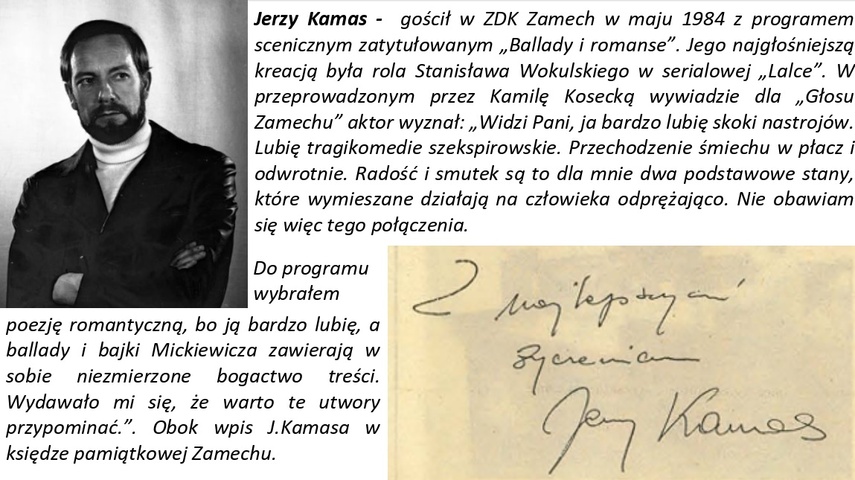 Jerzy Kamas - gościł w ZDK Zamech w maju 1984 z programem
scenicznym zatytułowanym „Ballady i romanse”. Jego najgłośniejszą
kreacją była rola Stanisława Wokulskiego w serialowej „Lalce”. W
przeprowadzonym przez Kamilę Kosecką wywiadzie dla „Głosu
Zamechu” aktor wyznał: „Widzi Pani, ja bardzo lubię skoki nastrojów.
Lubię tragikomedie szekspirowskie. Przechodzenie śmiechu w płacz i
odwrotnie. Radość i smutek są to dla mnie dwa podstawowe stany,
które wymieszane działają na człowieka odprężająco. Nie obawiam
się więc tego połączenia.
Do programu
wybrałem
poezję romantyczną, bo ją bardzo lubię, a
ballady i bajki Mickiewicza zawierają w
sobie niezmierzone bogactwo treści.
Wydawało mi się, że warto te utwory
przypominać.”. Obok wpis J.Kamasa w
księdze pamiątkowej Zamechu.
Z najlepszymi
życzeniami
Jerzy Kamas